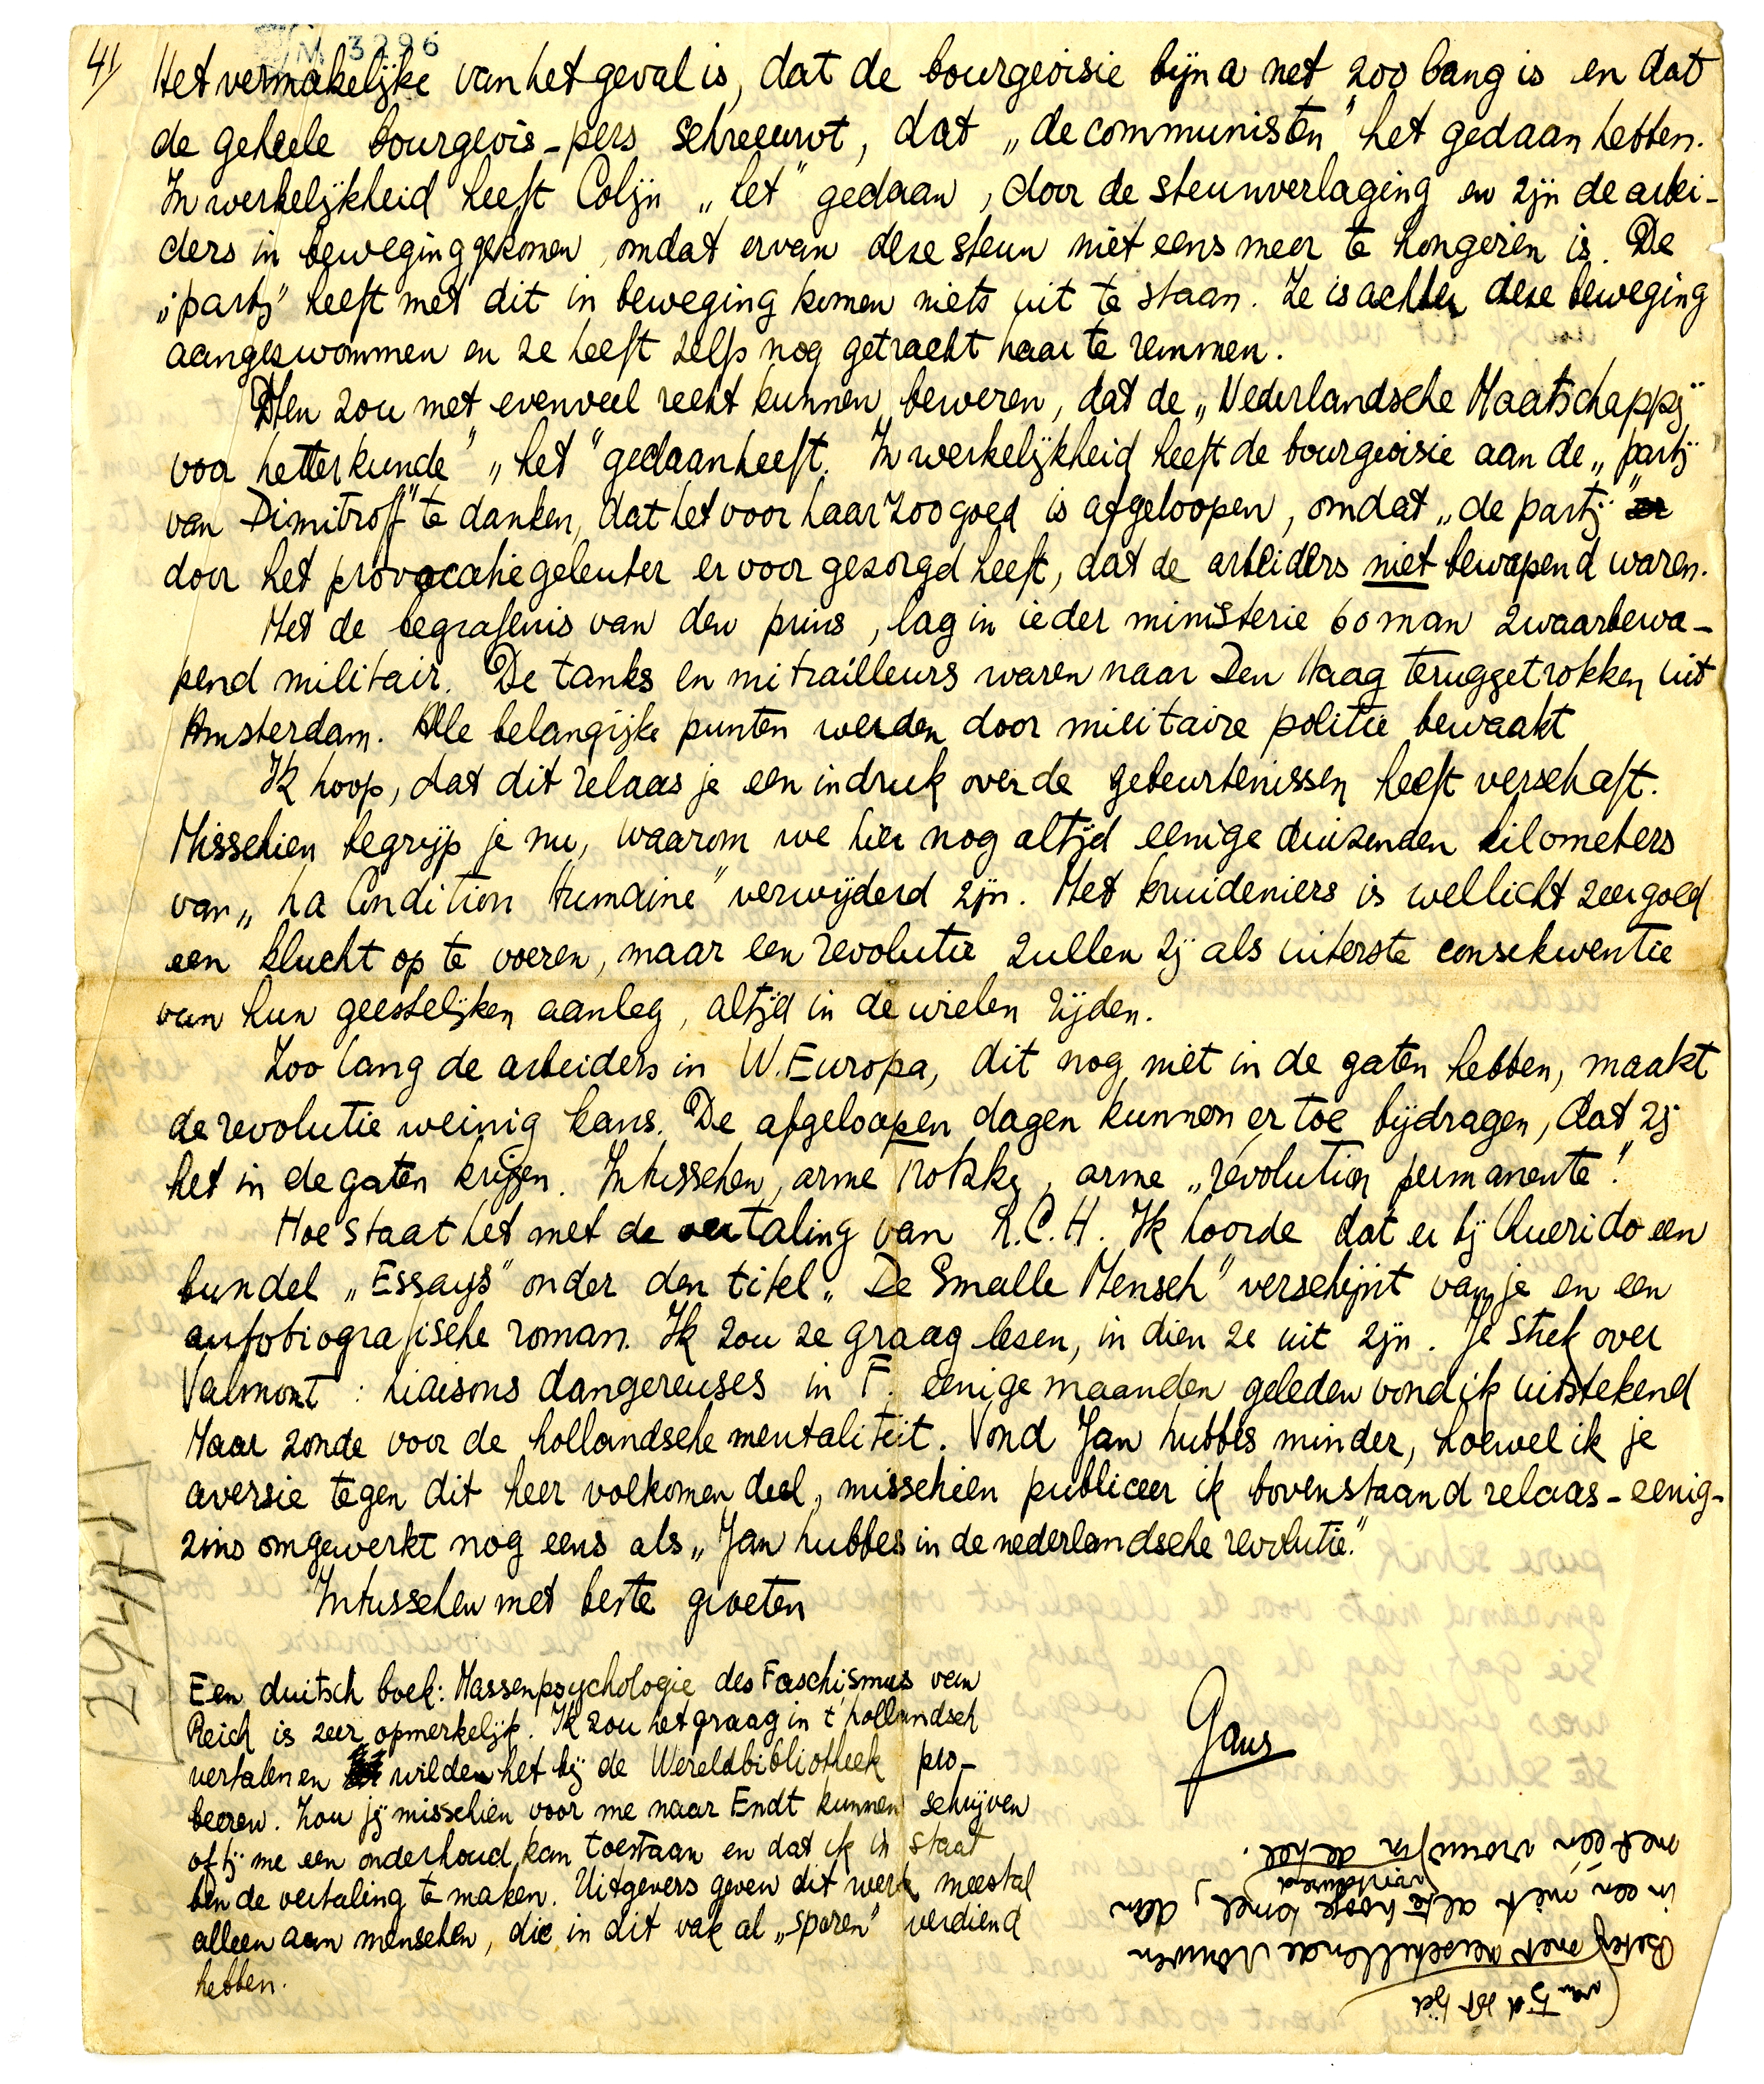 M 3296
4/
Het vermakelijke van het geval is, dat de bourgeoisie bijna net zoo bang is en dat
de geheele bourgeois-pers schreeuwt, dat „de communisten" het gedaan hebben.
In werkelijkheid heeft Colijn „het" gedaan, door de steunverlaging en zijn de arbei-
ders in beweging gekomen, omdat ervan deze steun niet eens meer te hongeren is. De
„partij" heeft met dit in beweging komen niets uit te staan. Ze is achter deze beweging
aangezwommen en ze heeft zelfs nog getracht haar te remmen.
Men zou met evenveel recht kunnen beweren, dat de „Nederlandsche Maatschappij
voor Letterkunde" „het" gedaan heeft. In werkelijkheid heeft de bourgeoisie aan de „partij
van Dimitroff" te danken, dat het voor haar zoo goed is afgeloopen, omdat „de partij"
door het provocatiegeleuter er voor gezorgd heeft, dat de arbeiders niet bewapend waren.
Met de begrafenis van den prins, lag in ieder ministerie 60 man zwaarbewa-
pend militair. De tanks en mitrailleurs waren naar Den Haag teruggetrokken uit
Amsterdam. Alle belangrijke punten werden door militaire politie bewaakt
Ik hoop, dat dit relaas je een indruk over de gebeurtenissen heeft verschaft.
Misschien begrijp je nu, waarom we hier nog altijd eenige duizenden kilometers
van „La Condition Humaine" verwijderd zijn. Met kruideniers is wellicht zeer goed
een klucht op te voeren, maar een revolutie zullen zij als uiterste consekwentie
van hun geestelijken aanleg, altijd in de wielen rijden.
Zoo lang de arbeiders in W. Europa, dit nog niet in de gaten hebben, maakt
de revolutie weinig kans. De afgeloopen dagen kunnen er toe bijdragen, dat zij
het in de gaten krijgen. Intusschen, arme Trotzky, arme „révolution permanente"!
Hoe staat het met de vertaling van L.C.H. Ik hoorde dat er bij Querido een
bundel „Essays" onder den titel „De Smalle Mensch" verschijnt van je en een
autobiografische roman. Ik zou ze graag lezen, in dien ze uit zijn. Je stuk over
Valmont: Liaisons dangereuses in F. eenige maanden geleden vond ik uitstekend
Maar zonde voor de hollandsche mentaliteit. Vond Jan Lubbes minder, hoewel ik je
aversie tegen dit heer volkomen deel, misschien publiceer ik bovenstaand relaas - eenig-
zins omgewerkt nog eens als „Jan Lubbes in de nederlandsche revolutie."
Intusschen met beste groeten
Gans
Een duitsch boek: Massenpsychologie des Faschismus van
Reich is zeer opmerkelijk. Ik zou het graag in 't hollandsch
vertalen en wilden het bij de Wereldbibliotheek pro-
beeren. Zou jij misschien voor me naar Endt kunnen schrijven
of hij me een onderhoud kan toestaan en dat ik in staat
ben de vertaling te maken. Uitgevers geven dit werk meestal
alleen aan menschen, die in dit vak al „sporen" verdiend
hebben.
van tijd tot tijd
Beter met verschillende vrouwen
in een niet al te hooge hemel, dan
voortdurend
met één vrouw in de hel.